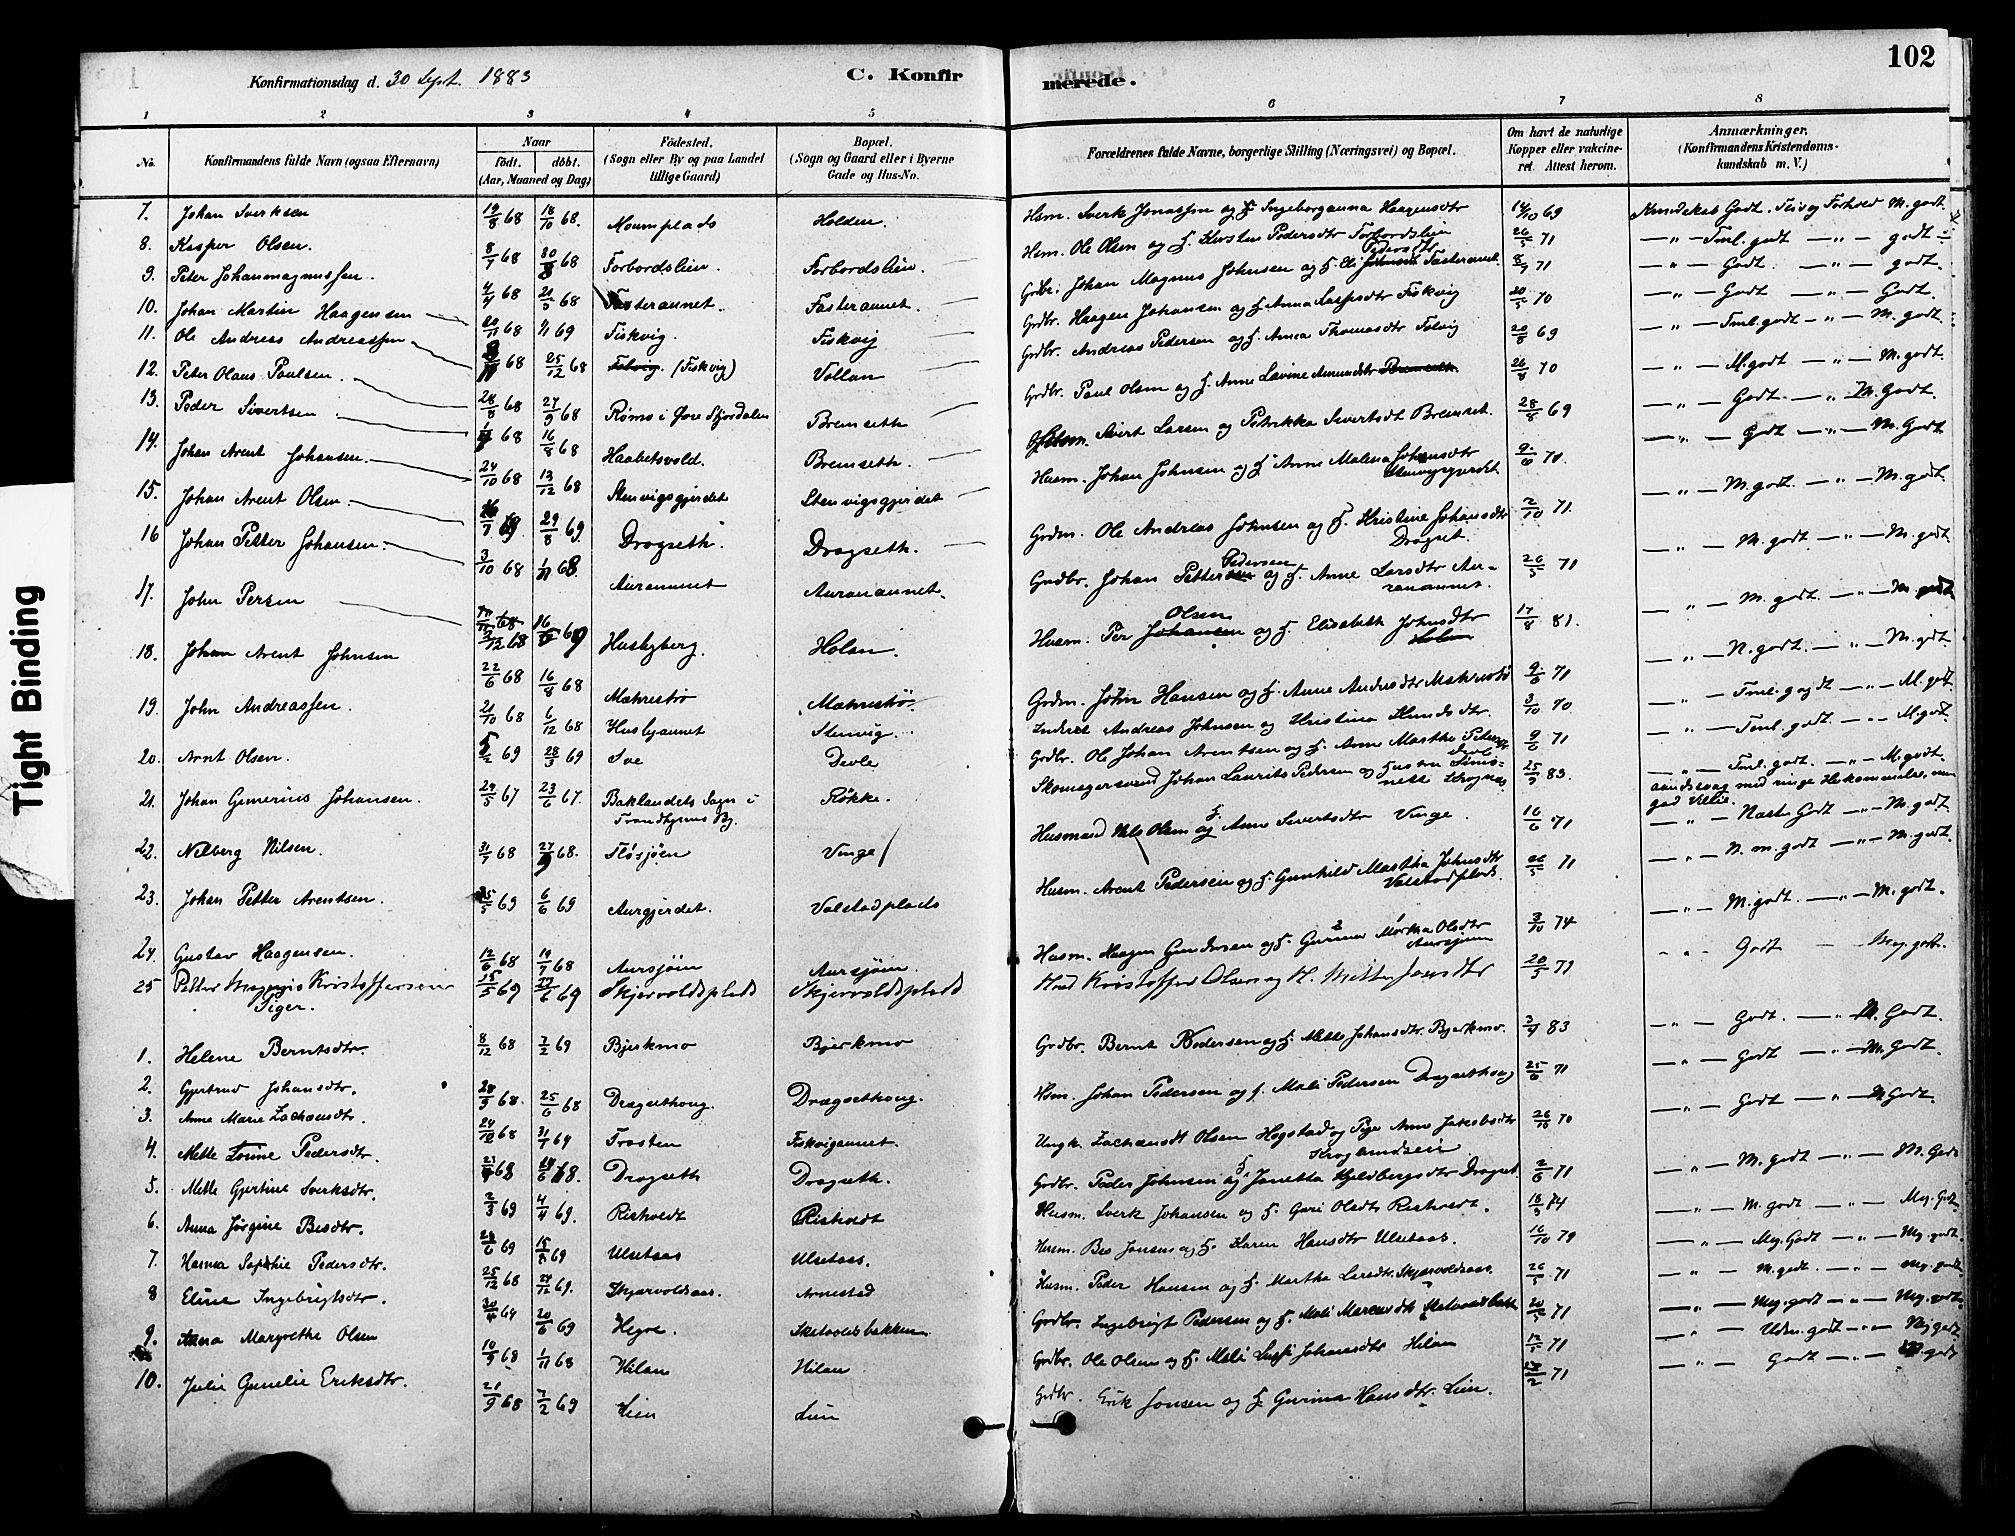 102
Konfirmationsdag d. 30 Sept. 1883
C. Konfirmerede.
1 2 3 4 5 6 7 8
No. Konfirmandens fulde Navn (ogsaa Efternavn) Naar födt. döbt. (Aar, Maaned og Dag) Födested. (Sogn eller By og paa Landet tillige Gaard) Bopæl. (Sogn og Gaard eller i Byerne Gade og Hus-No. Forældrenes fulde Navne, borgerlige Stilling (Næringsvei) og Bopæl. Om havt de naturlige Kopper eller vakcineret. Attest herom. Anmærkninger. (Konfirmandens Kristendomskundskab m. V.)
7. Johan Sverksen 19/8 68 18/10 68. Moumplads Holden Hsm. Sverk Jonassen og H. Ingeborganna Haagensdtr 14/10 69 Kundskab Godt. Flid og Forhold M. godt.
8. Kasper Olsen. 8/7 68 30/8 68 Forbordslien. Forbordslien. Hsm. Ole Olsen og H. Kirsten Pedersdtr Forbordslien 26/5 71 — " — Tml. godt — " — godt
9. Peter Johanmagnussen. 4/4 68 21/5 68 Fasteraunet. Fasteraunet. Grdbr. Johan Magnus Johnsen og H. Eli Pedersdtr Fasteraunet 8/9 71 — " — Godt. — " — godt.
10. Johan Martin Haagensen 20/11 68 1/1 69 Fiskvig. Fiskvig Grdbr. Haagen Johansen og H. Anna Larsdtr Fiskvig 20/5 70 — " — Godt — " — Godt.
11. Ole Andreas Andreassen 68 25/12 68 Folvig. (Fiskvig) Vollan Grdbr. Andreas Pedersen og H. Anna Thomasdtr Folvig 20/8 69 — " — Tml. godt — " — M. godt.
12. Peter Olaus Paulsen. 28/8 68 27/9 68 Røms i Øvre Stjørdalen Bremseth Grdbr. Paul Olsen og H. Anne Lavine Amundsdtr 26/8 70 — " — M. godt — " — M. godt.
13. Peder Sivertsen 68 16/8 68 Haabetsvold. Bremseth. Sivert Larsen og Petrikka Sivertsdt Bremset. 28/8 69 — " — Godt — " — M. Godt.
14. Johan Arent Johansen. 24/10 68 13/12 68 Stenvigsgjerdet Stenvigsgjerdet Husm. Johan Johnsen og H. Anne Malena Johansdtr Stenvigsgjerdet 9/6 71. — " — Godt — " — M. Godt
15. Johan Arent Olsen 69 29/8 69 Dragseth. Dragseth. Grdm. Ole Andreas Johnsen og H. Kristine Johansdtr Dragset. 2/10 71. — " — M. godt. — " — M. godt.
16 Johan Petter Johansen. 3/10 68 1/11 68. Auraunet Auranaunet. Grdbr. Johan Petter Pedersen og H. Anne Larsdtr Auranaunet. 26/5 71 — " — M. godt. — " — M. godt
17. John Persen 3/12 68 69 Husbyberg. Holan. Husm. Per Johansen Olsen og H. Elisabeth Johnsdtr Holan 17/8 81. — " — M. godt. — " — M. godt
18. Johan Arent Johnsen 22/6 68 16/8 68 Mæhrestrø Mæhrestrø. Grdm. John Hansen og H. Anne Andersdtr Mæhrestrø 9/6 71 — " — N. godt. — " — M. godt.
19. John Andreassen. 21/10 68 6/12 68 Husbyaunet Stenvig. Inderst Andreas Johnsen og Kristina Knudsdtr. 3/10 70 — " — Tml. godt — " — M. godt
20. Arnt Olsen. 69 28/3 69 Devle Grdbr. Ole Johan Arentsen og H. Anne Marthe Pedersdt Devle 9/6 71 — " — Tml. godt. — " — M. godt.
21. Johan Gemerius Johansen. 24/5 67 23/6 67. Baklandets Sogn i Trondhjems By. Røkke. Skomagersvend Johan Laurits Pedersen og Hustru 25/9 83. — " — Tml. godt. — " — M. godt.
22. Nilberg Nilsen. 31/7 68 27/9 68. Flösjöen Vinge Husmand Nils Olsen og H. Anne Sivertsdtr Vinge. 16/6 71 — " — Næst. Godt — " — M. godt.
23. Johan Petter Arentsen. 25/5 69 6/6 69 Aurgjerdet. Valstadplads Husm. Arent Pedersen og H. Gunhild Martha Johnsdtr Valstadplads. 71 — " — N. m. godt — " — M. godt.
24. Gustav Haagensen. 12/6 68 19/7 68 Aursjøen Aursjøen. Husm. Haagen Gundersen og H. Gurina Mørtha Olsdtr Aursjøen 3/10 74 — " — M. godt. — " — M. godt.
25 Petter Magnus Kristoffersen Tiger. 25/5 69 27/6 69 Skjervoldsplads Skjervoldsplads Hsmd Kristoffer Olsen og H. Mette Jonsdtr 20/5 71 " " Godt — Meg. godt.
1. Helene Berntsdtr. 8/12 68 7/2 69 Bjerkmo Bjerkmo Grdbr. Bernt Pedersen og H. Mette Johansdtr. Bjerkmo. 3/9 83 — " — Godt. — " — M. Godt.
2. Gjertrud Johansdtr. 68. 25/6 68 Dragsethaug. Dragsethaug. Hsm. Johan Pedersen og H. Mali Pedersen Dragsethaug 25/6 71 — " — Godt — " — M. Godt.
3. Anne Marie Zachæusdtr. 24/12 68 31/7 69 Frosten Fiskvigaunet. Ungk. Zachæusdt Olsen Hogstad og Pige Anne Jakobsdtr 26/10 70 — " — Godt — " — M. Godt.
4. Mette Lovine Pedersdtr. 68 68. Dragseth Dragseth. Grdbr. Peder Johnsen og H. Janetta Kjeldbergsdtr Dragset. 2/6 71 — " — M. godt — " — M. Godt
5. Mette Gjertine Sverksdtr. 2/3 69 4/4 69. Ristvedt Ristvedt Husm. Sverk Johansen og H. Guri Olsdtr Ristvedt. 18/9 84 — " — M. godt. — " — Meg. Godt
6. Anna Jørgine Besdtr. 24/6 69 15/8 69 Ulsetaas Ulsetaas. Husm. Bes Jonsen og H. Karen Hansdtr Ulsetaas. 16/10 79 — " — Meg. Godt — " — Meg. godt.
7. Hanna Sophie Pedersdtr. 25/12 68 69. Skjervoldsaas. Arnestad Husm. Peder Hansen og H. Martha Larsdtr Skjervoldsaas. 26/5 71 — " — M. godt. — " — Meg. godt
8 Eline Ingebrigtsdtr. 30/4 69 20/6 69 Hegre. Sketvoldsbakken Grdbr. Ingebrigt Pedersen og H. Mali Marcusdt 20/5 71 — " — Meg. godt — " — Meg. godt
9. Anna Margrethe Olsen 10/9 68 1/11 68 Hilan Hilan Grdbr. Ole Olsen og H. Mali Johansdtr Hilan 12/5 71 — " — Udm. godt — " — Meg godt
10. Julie Gunelie Eriksdtr. 21/9 68 7/2 69 Lien Lien Grdbr. Erik Jonsen og H. Gurina Hansdtr. Lien. 71 — " — Godt — " — M. godt
Tight Binding